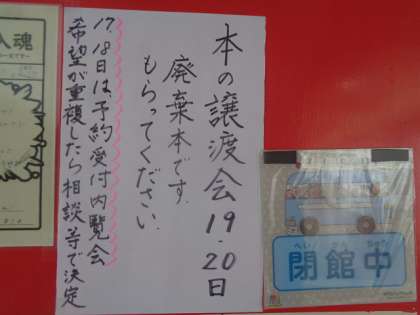 本の譲渡会19.20日
廃棄本です.
もらってください.
17.18日は、予約受付内覧会
希望が重複したら相談等で決定
へい かん ちゅう
閉館中
入魂